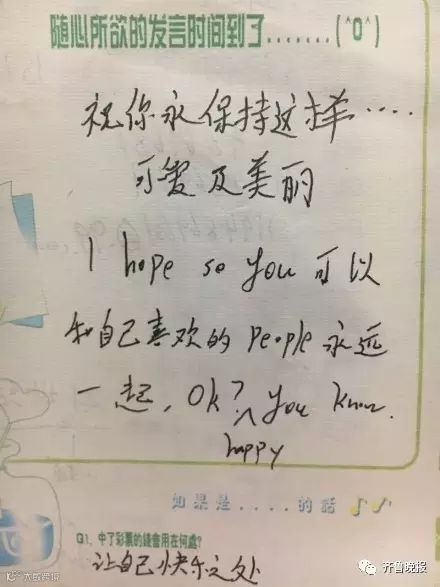 随心所欲的发言时间到了.......(^O^)
祝你永保持这样....
可爱及美丽
I hope so you 可以
和自己喜欢的 people 永远
一起, Ok? you know.
happy
如果是....的話
Q1. 中了彩票的錢會用在何處?
让自己快乐之处
大数跨境
齐鲁晚报